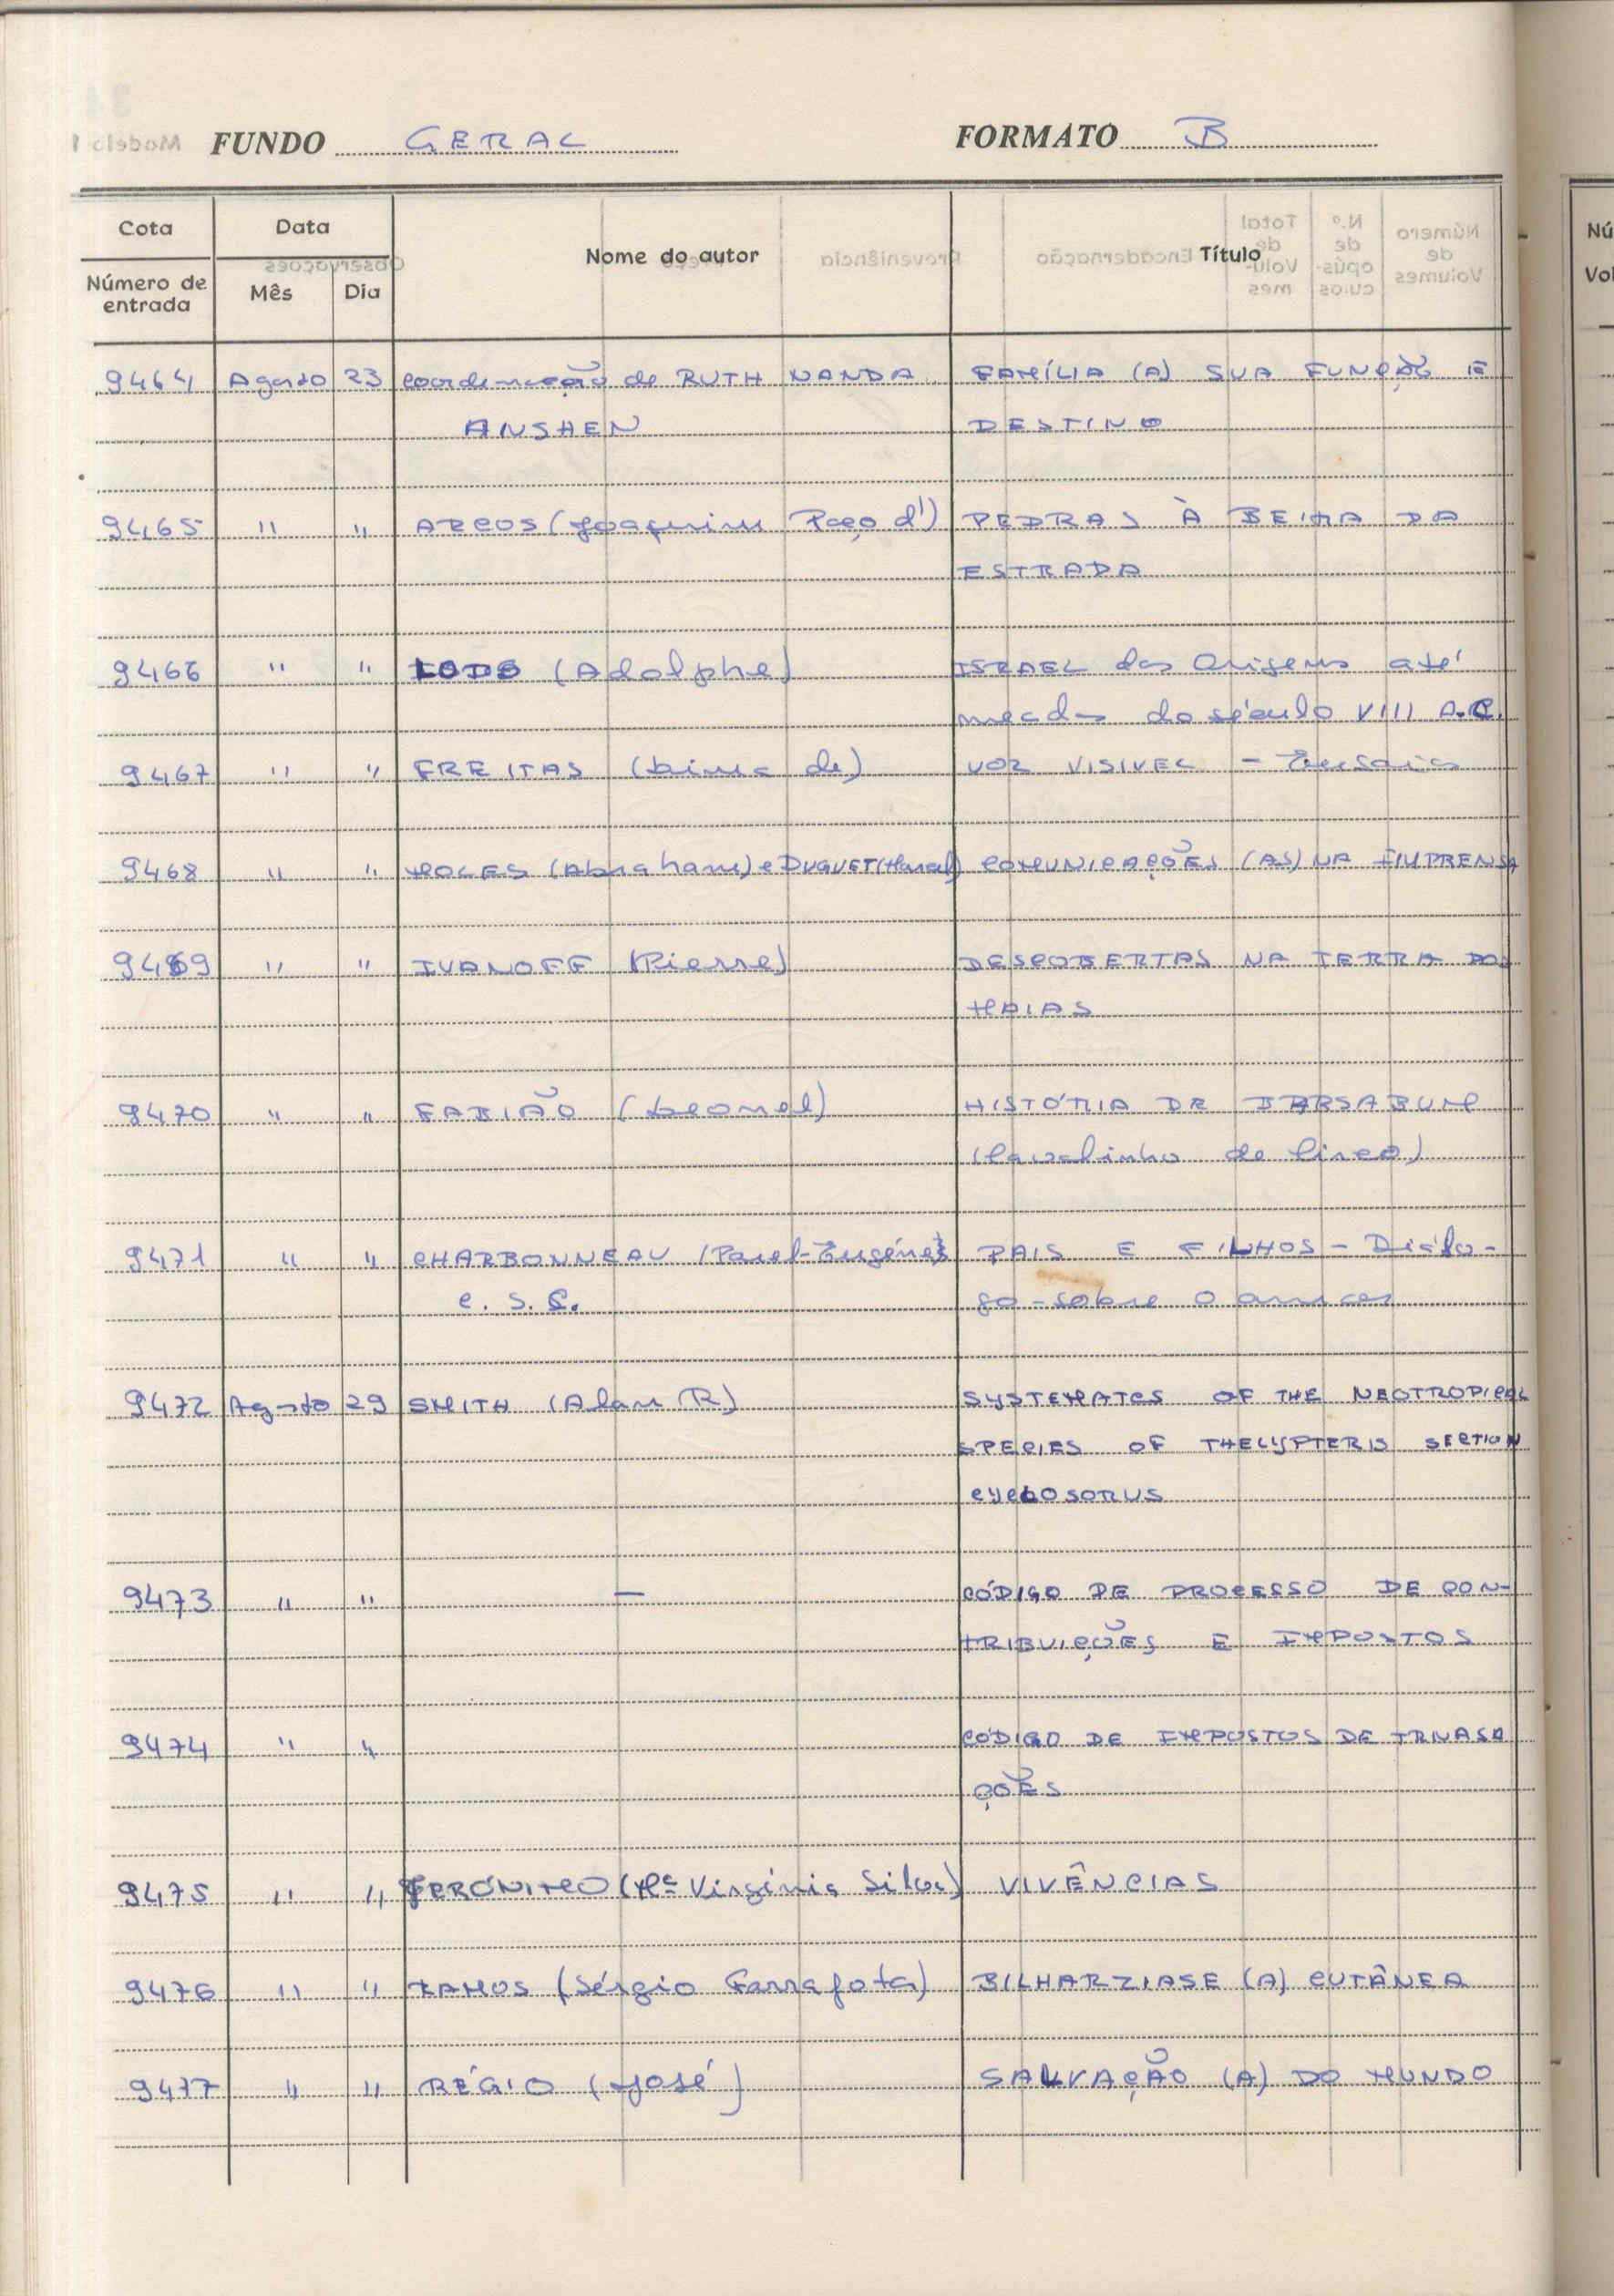 FUNDO GERAL FORMATO B
Cota Data Nome do autor Título
Número de entrada Mês Dia
9464 Agosto 23 Coordenação de RUTH NANDA FAMÍLIA (A) SUA FUNÇÃO E
ANSHEN DESTINO
9465 " " ARCOS (Joaquim Paço d') PEDRAS À BEIRA DA
ESTRADA
9466 " " LODS (Adolphe) ISRAEL das Origens até
meados do século VIII A.C.
9467 " " FREITAS (Lima de) VOZ VISIVEL - Ensaios
9468 " " MOLES (Abraham) e DUGUET (Manal) COMUNICAÇÕES (AS) NA IMPRENSA
9469 " " IVANOFF (Pierre) DESCOBERTAS NA TERRA DOS
MAIAS
9470 " " FABIÃO (Leonel) HISTÓRIA DE BARSABUM
(Cavalinho de Circo)
9471 " " CHARBONNEAU (Paul-Eugéne) PAIS E FILHOS - Diálo-
C. S. C. go - sobre o amor
9472 Agosto 29 SMITH (Alan R) SYSTEMATCS OF THE NEOTROPICAL
SPECIES OF THELYPTERIS SECTION
CYCLOSORUS
9473 " " — CÓDIGO DE PROCESSO DE CON-
TRIBUIÇÕES E IMPOSTOS
9474 " " CÓDIGO DE IMPOSTOS DE TRNASA
ÇÕES
9475 " " JERÓNIMO (Mª Virgínia Silva) VIVÊNCIAS
9476 " " RAMOS (Sérgio Farrafota) BILHARZIASE (A) CUTÂNEA
9477 " " RÉGIO (José) SALVAÇÃO (A) DO MUNDO